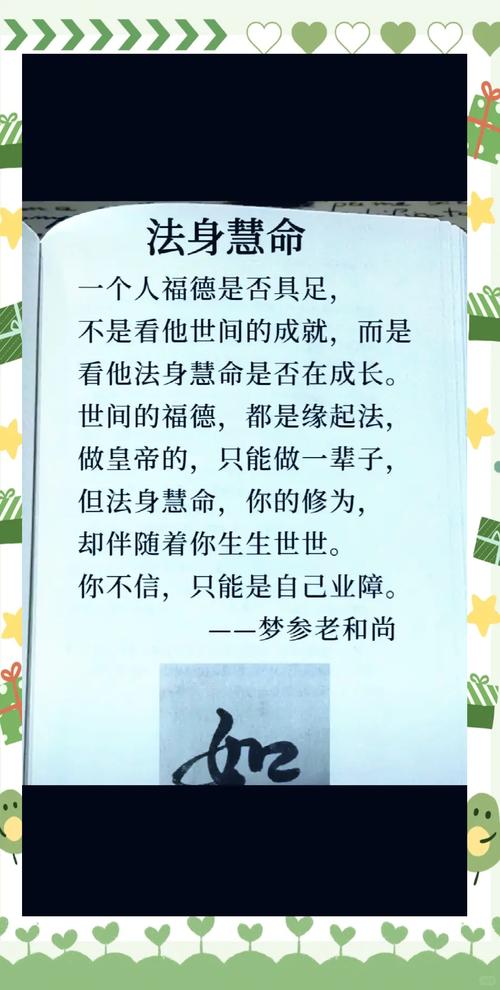 法身慧命
一个人福德是否具足，
不是看他世间的成就，而是
看他法身慧命是否在成长。
世间的福德，都是缘起法，
做皇帝的，只能做一辈子，
但法身慧命，你的修为，
却伴随着你生生世世。
你不信，只能是自己业障。
——梦参老和尚
如